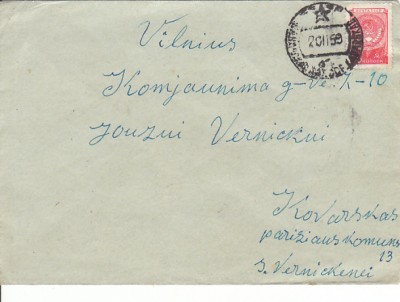 Vilnius
Komjaunimo g-ve 7-10
Jouzui Vernickui
Kovarskas
pariziaus komunos
13
J. Vernickenei